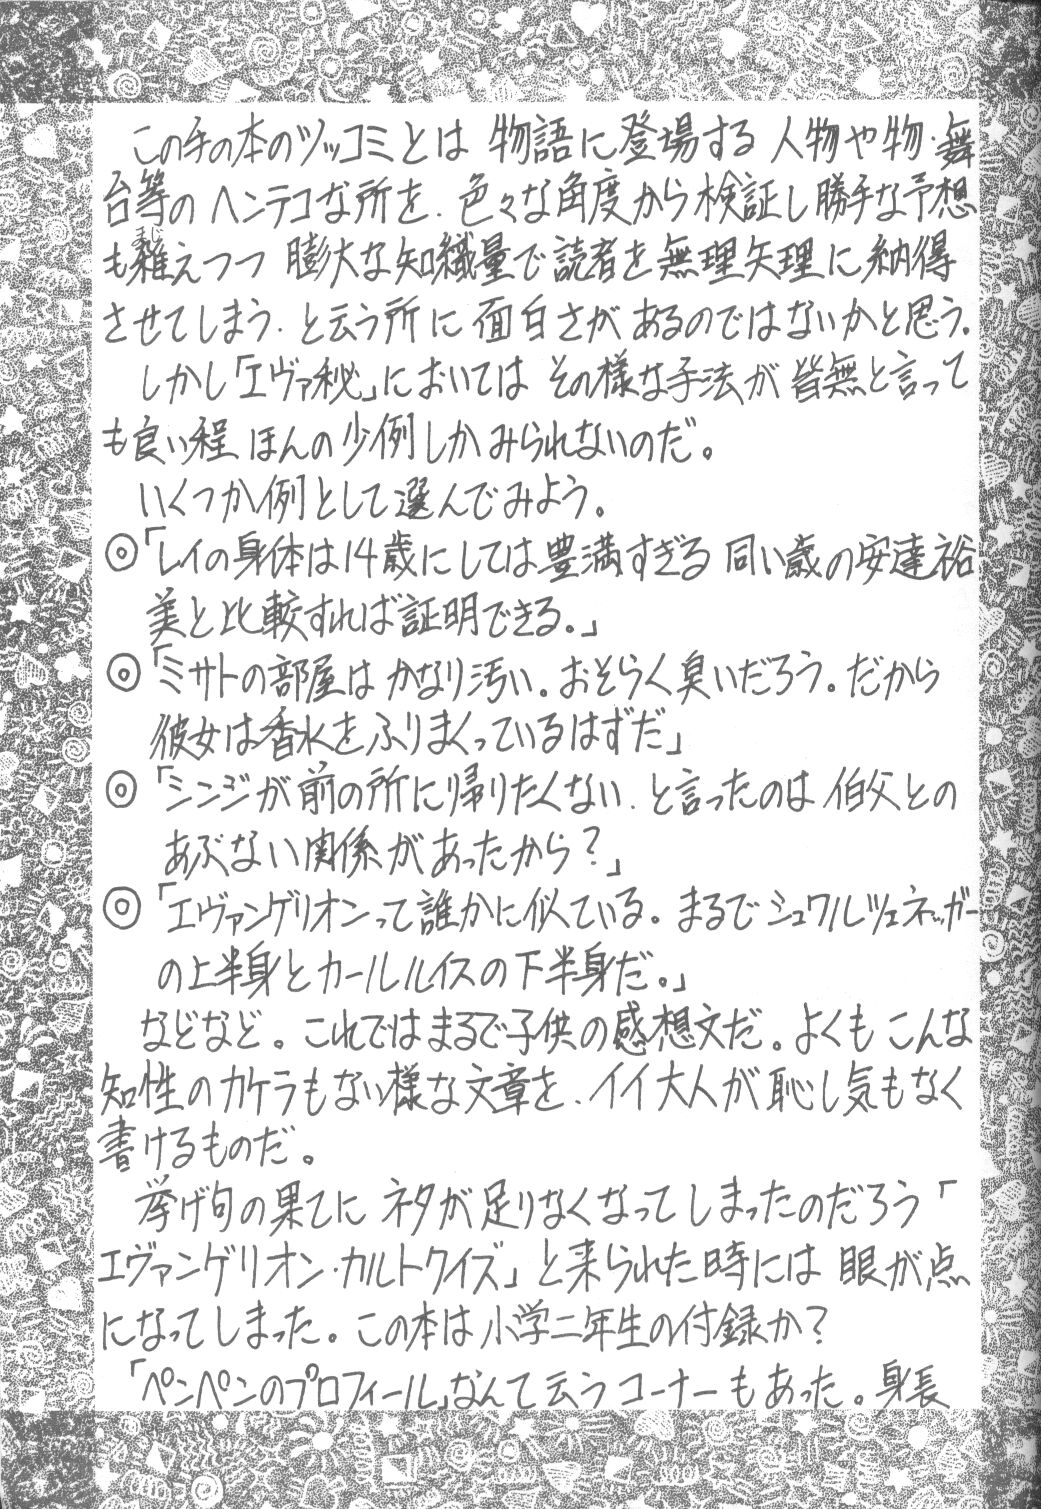 この手の本のツッコミとは 物語に登場する 人物や物・舞
台等の ヘンテコな所を、色々な角度から検証し勝手な予想
も雑えつつ 膨大な知織量で読者を無理矢理に納得
まじ
させてしまう、と云う所に 面白さが あるのではないかと思う。
しかし「エヴァ秘」においては その様な手法が 皆無と言って
も良い程 ほんの少例しかみられないのだ。
いくつか例として選んでみよう。
◎「レイの身体は14歳にしては豊満すぎる 同い歳の安達裕
美と比較すれば証明できる。」
◎「ミサトの部屋は かなり汚い。おそらく臭いだろう。だから
彼女は香水をふりまくっているはずだ」
◎「シンジが前の所に帰りたくない、と言ったのは 伯父との
あぶない関係があったから?」
◎「エヴァンゲリオンって誰かに似ている。まるでシュワルツェネッガー
の上半身とカールルイスの下半身だ。」
などなど。これではまるで子供の感想文だ。よくも こんな
知性のカケラもない様な文章を、イイ大人が恥し気もなく
書けるものだ。
挙げ句の果てに ネタが足りなくなってしまったのだろう「
エヴァンゲリオン・カルトクイズ」と来られた時には 眼が点
になってしまった。この本は小学二年生の付録か?
「ペンペンのプロフィール」なんて云うコーナーもあった。身長